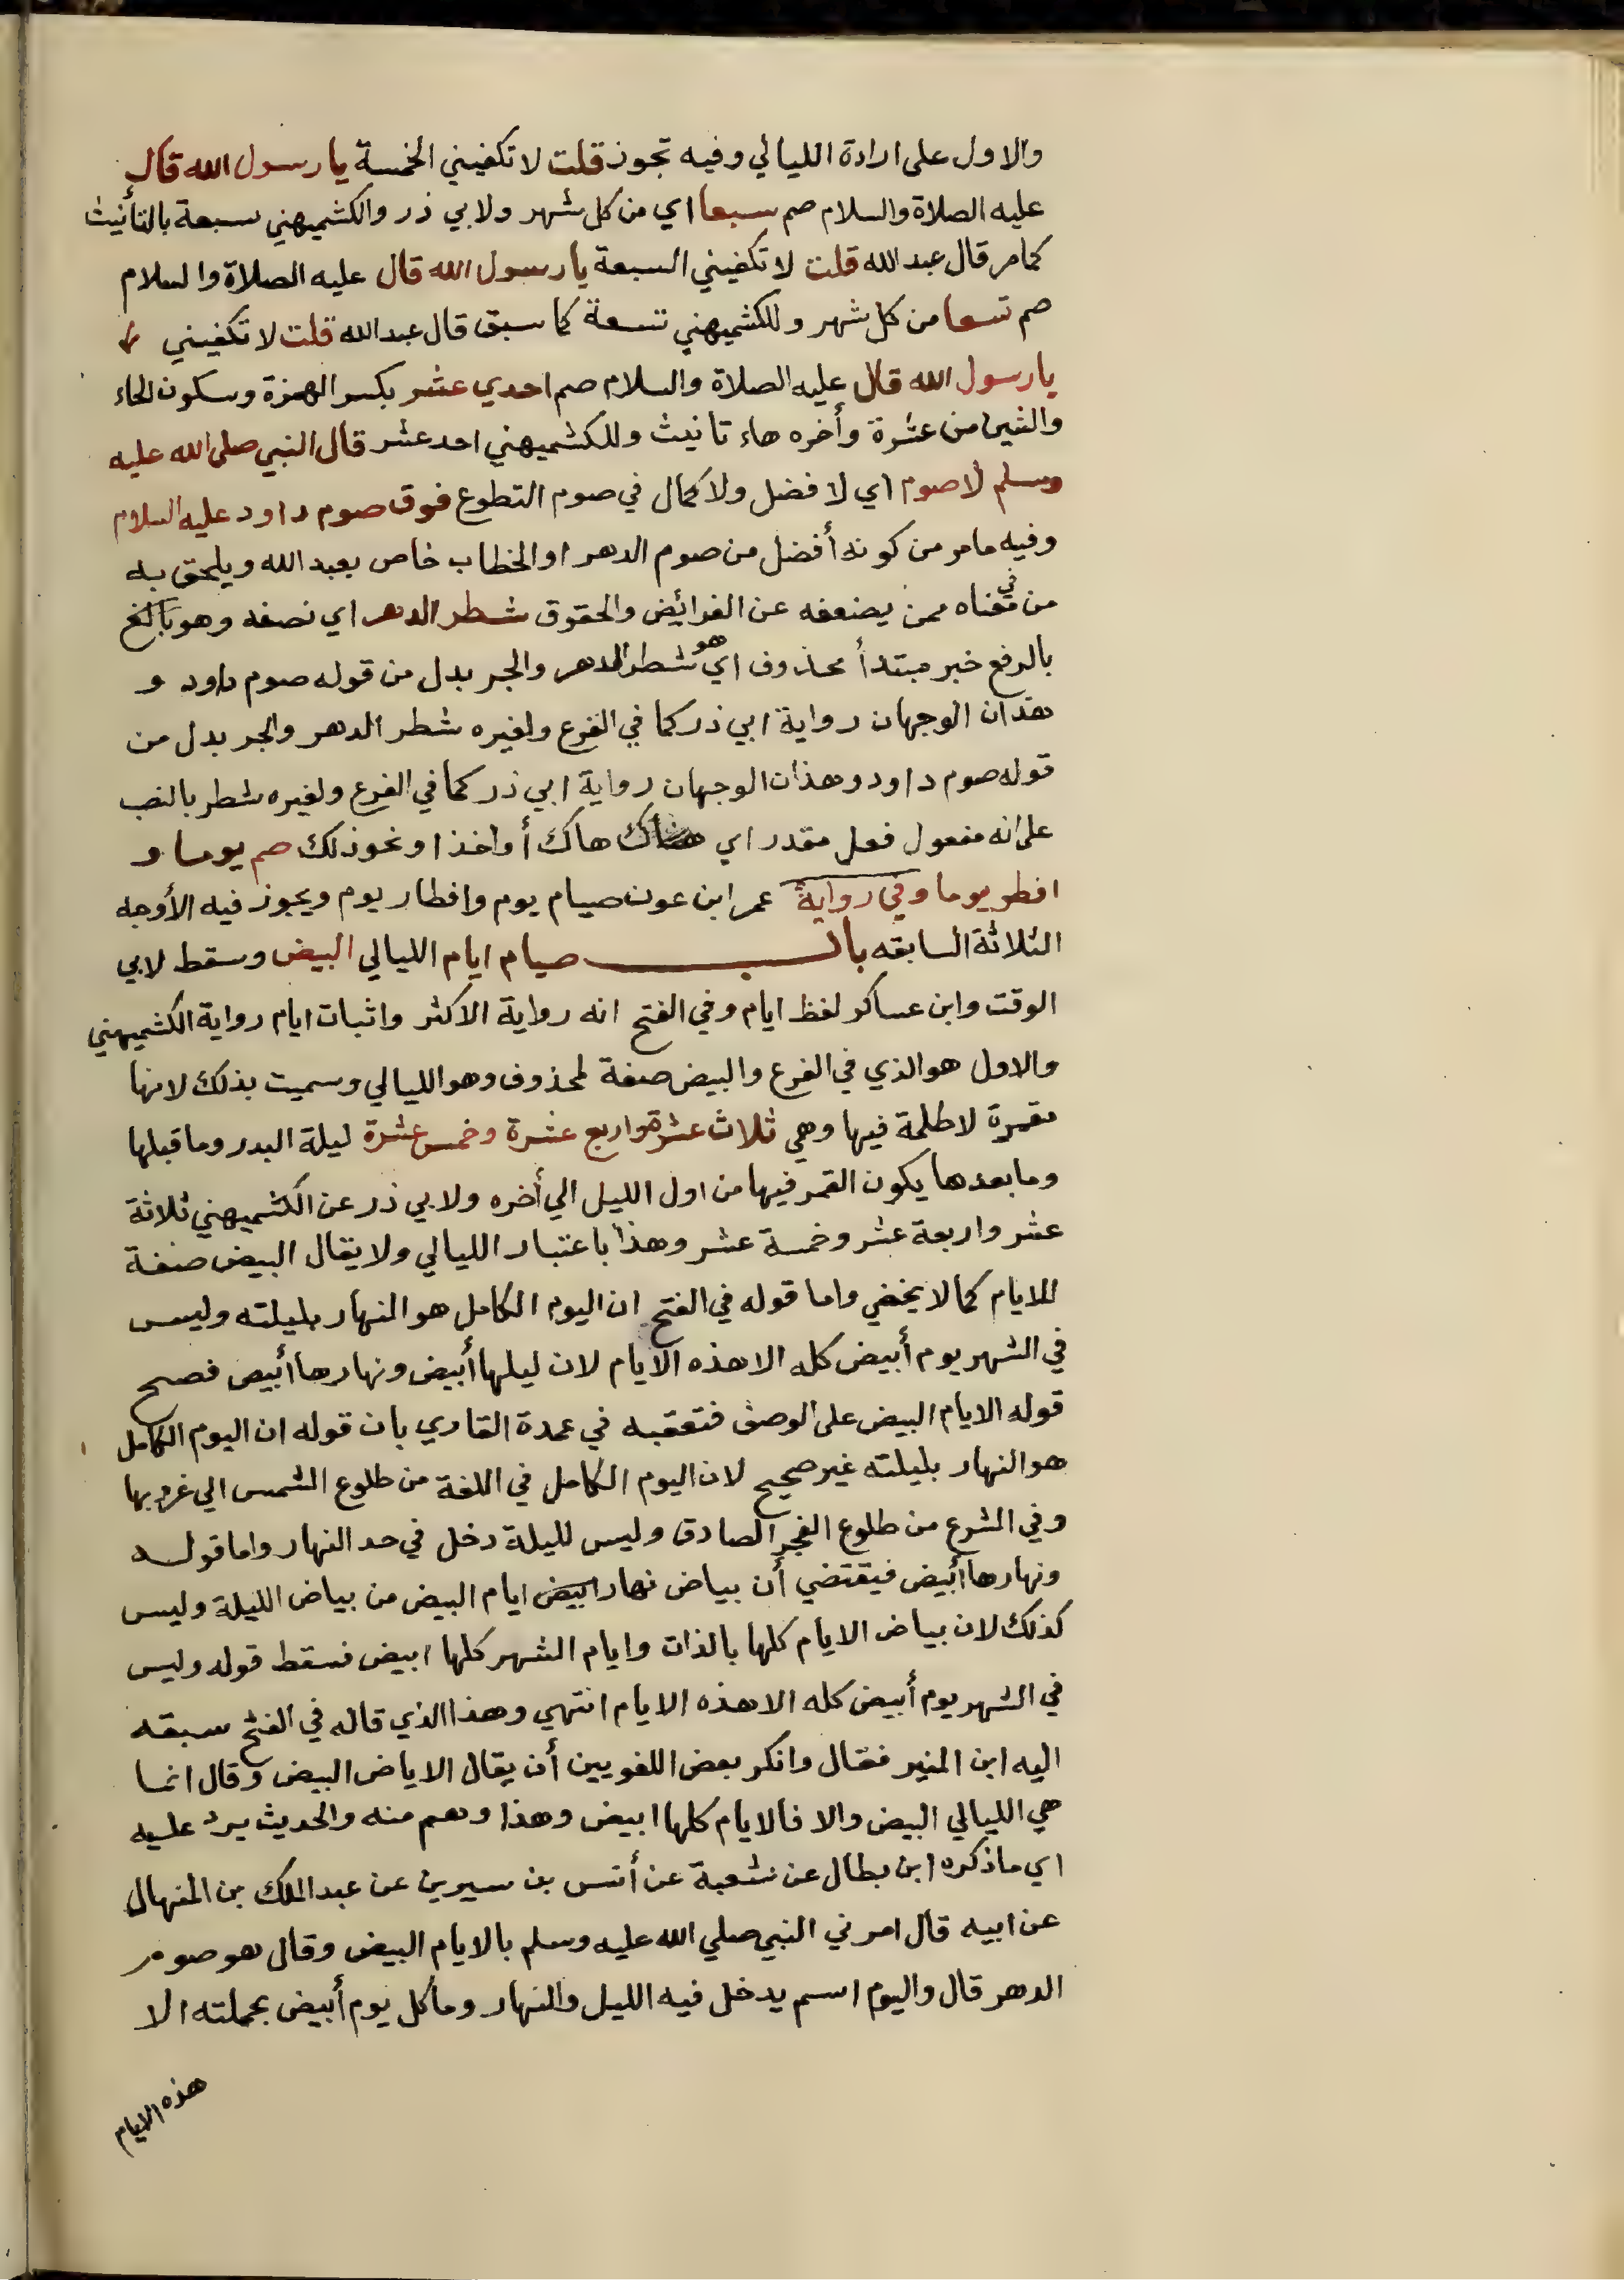 والاول على ارادة الليالي وفيه تجوز قلت لا تكفيني الخمسة يا رسول الله قال
عليه الصلاة والسلام صم سبعا اي من كل شهر ولابي ذر والكشميهني سبعة بالتأنيث
كمامر قال عبد الله قلت لا تكفيني السبعة يا رسول الله قال عليه الصلاة والسلام
صم تسعا من كل شهر وللكشميهني تسعة كما سبق قال عبد الله قلت لا تكفيني
يا رسول الله قال عليه الصلاة والسلام صم احدي عشر بكسر الهمزة وسكون الحاء
والشين من عشرة وأخره هاء تانيث وللكشميهني احد عشر قال النبي صلى الله عليه
وسلم لا صوم اي لا فضل ولا كمال في صوم التطوع فوق صوم داود عليه السلام
وفيه مامر من كونه أفضل من صوم الدهر او الخطاب خاص بعبد الله ويلحق به
من في معناه ممن يضعفه عن الفرائض والحقوق شطر الدهر اي نصفه وهو بالغ
بالرفع خبر مبتدأ محذوف اي هو شطر الدهر والجر بدل من قوله صوم داود و
هذان الوجهان رواية ابي ذر كما في الفرع ولغيره شطر الدهر والجر بدل من
قوله صوم داود وهذان الوجهان رواية ابي ذر كما في الفرع ولغيره شطر بالنصب
على انه مفعول فعل مقدر اي هاك أو اخذ او نحو ذلك صم يوما و
افطر يوما وفي رواية عمر ابن عون صيام يوم وافطار يوم ويجوز فيه الأوجه
الثلاثة السابقه باب صيام ايام الليالي البيض وسقط لابي
الوقت وابن عساكر لفظ ايام وفي الفتح انه رواية الاكثر واثبات ايام رواية الكشميهني
والاول هو الذي في الفرع والبيض صفة لمحذوف وهو الليالي وسميت بذلك لانها
مقمرة لا ظلمة فيها وهي ثلاث عشرة واربع عشرة وخمس عشرة ليلة البدر وما قبلها
وما بعدها يكون القمر فيها من اول الليل الي أخره ولابي ذر عن الكشميهني ثلاثة
عشر واربعة عشر وخمسة عشر وهذا باعتبار الليالي ولا يقال البيض صفة
للايام كما لا يخفي واما قوله في الفتح ان اليوم الكامل هو النهار بليلته وليس
في الشهر يوم أبيض كله الا هذه الايام لان ليلها أبيض ونهارها أبيض فصح
قوله الايام البيض على الوصف فتعقبه في عمدة القاري بان قوله ان اليوم الكامل
هو النهار بليلته غير صحيح لان اليوم الكامل في اللغة من طلوع الشمس الي غروبها
وفي الشرع من طلوع الفجر الصادق وليس لليلة دخل في حد النهار واما قوله
ونهارها أبيض فيقتضي أن بياض نهار ابيض ايام البيض من بياض الليلة وليس
كذلك لان بياض الايام كلها بالذات وايام الشهر كلها ابيض فسقط قوله وليس
في الشهر يوم أبيض كله الا هذه الايام انتهي وهذا الذي قاله في الفتح سبقه
اليه ابن المنير فقال وانكر بعض اللغويين أن يقال الاياض البيض وقال انما
هي الليالي البيض والا فالايام كلها ابيض وهذا وهم منه والحديث يرد عليه
اي ما ذكره ابن بطال عن شعبة عن أنس بن سيرين عن عبد الملك بن المنهال
عن ابيه قال امرني النبي صلي الله عليه وسلم بالايام البيض وقال هو صوم
الدهر قال واليوم اسم يدخل فيه الليل والنهار وما كل يوم أبيض بجملته الا
هذه الايام